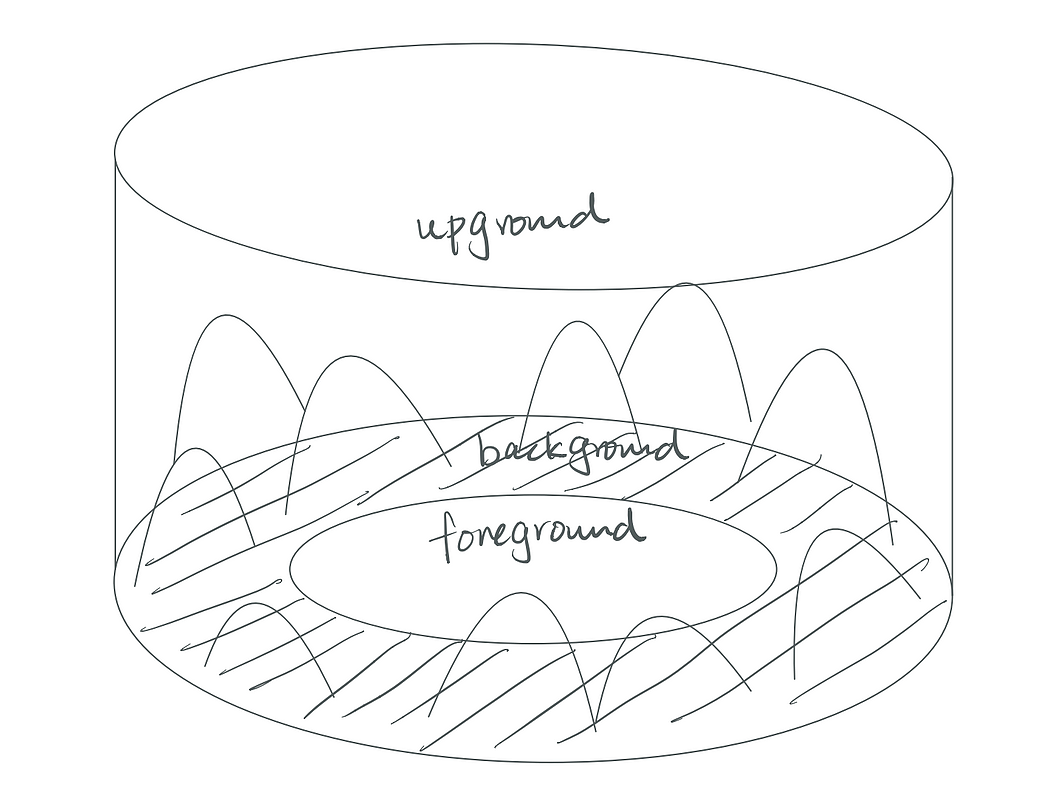 upground
background
foreground